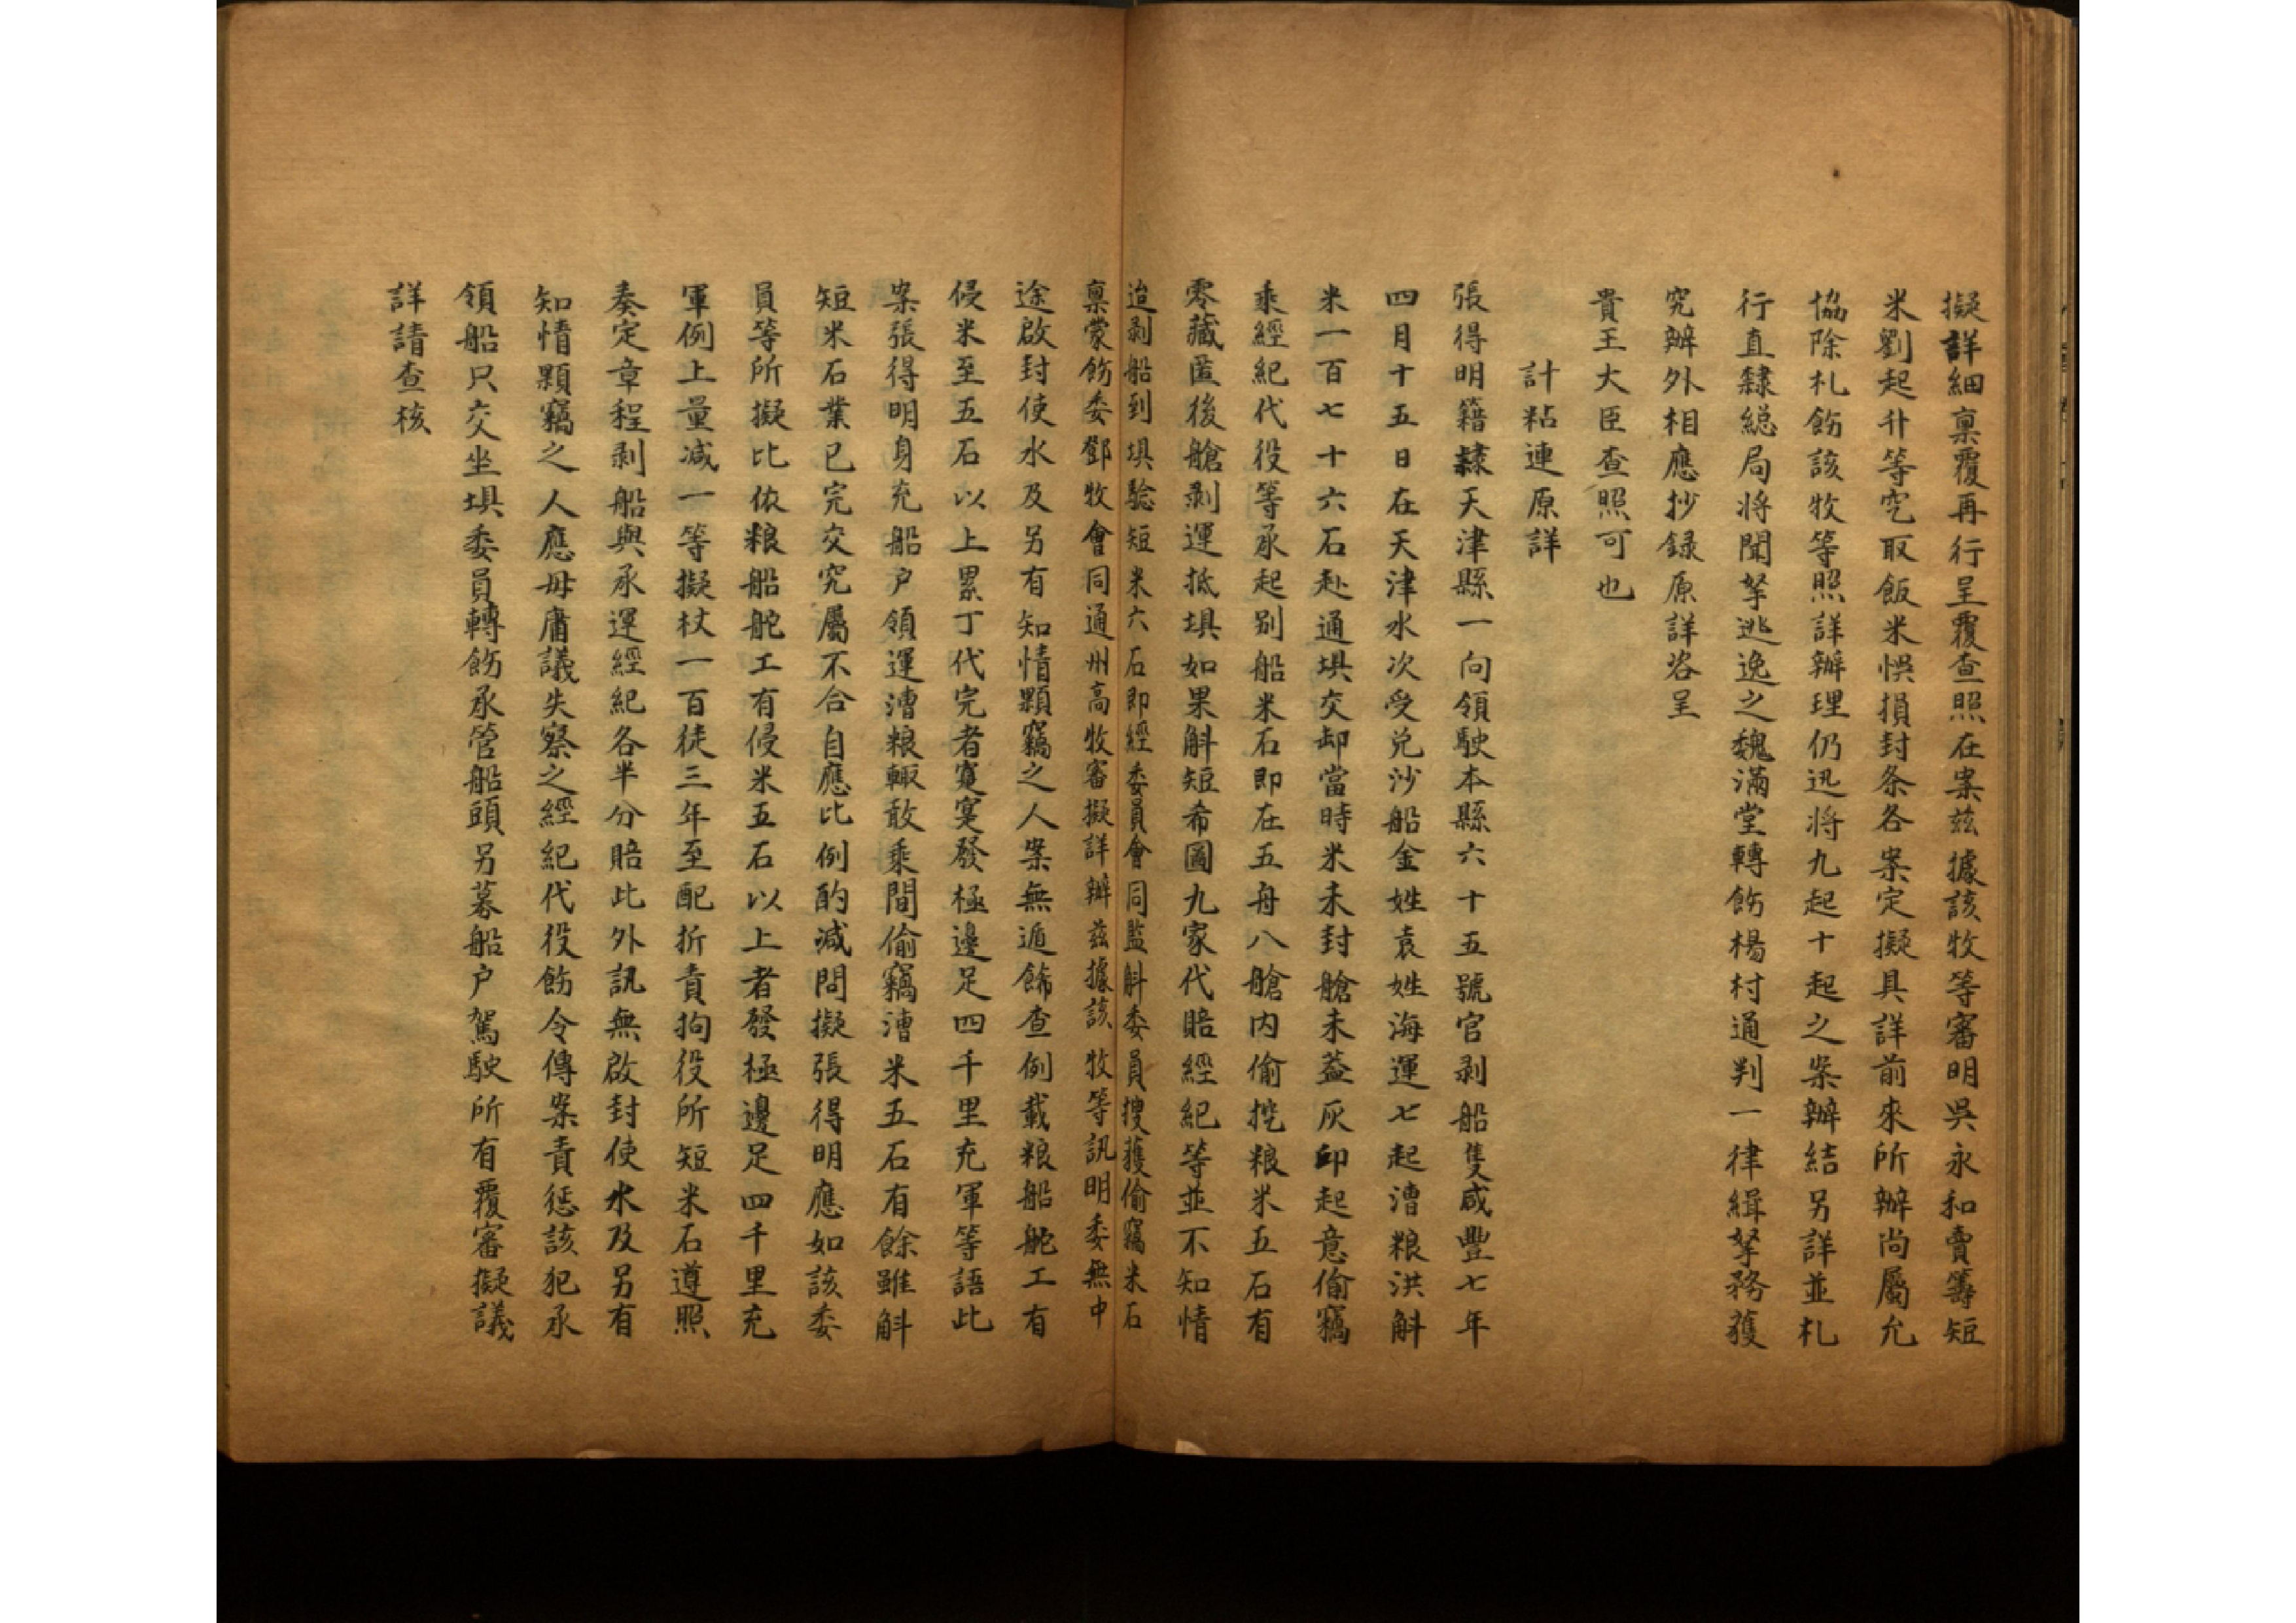 擬詳細稟覆再行呈覆查照在案茲據該牧等審明吳永和賣籌短
米劉起升等究取飯米悞損封条各案定擬具詳前來所辦尚屬允
協除札飭該牧等照詳辦理仍迅將九起十起之案辦結另詳並札
行直隸総局將聞拏逃逸之魏滿堂轉飭楊村通判一律緝拏務獲
究辦外相應抄録原詳咨呈
貴王大臣查照可也
計粘連原詳
張得明籍隸天津縣一向領駛本縣六十五號官剥船隻咸豐七年
四月十五日在天津水次受兑沙船金姓袁姓海運七起漕粮洪斛
米一百七十六石赴通埧交卸當時米未封艙未蓋灰印起意偷竊
乘經紀代役等承起别船米石即在五舟八艙内偷挖粮米五石有
零藏匿後艙剥運抵埧如果斛短希圖九家代賠經紀等並不知情
迨剥船到埧驗短米六石即經委員會同監斛委員搜獲偷竊米石
稟蒙飭委鄧牧會同通州高牧審擬詳辦茲據該牧等訊明委無中
途啟封使水及另有知情顆竊之人案無遁餙查例載粮船舵工有
侵米至五石以上累丁代完者寔寔發極邊足四千里充軍等語此
案張得明身充船户領運漕粮輙敢乘間偷竊漕米五石有餘雖斛
短米石業已完交究屬不合自應比例酌減問擬張得明應如該委
員等所擬比依粮船舵工有侵米五石以上者發極邊足四千里充
軍例上量減一等擬杖一百徒三年至配折責拘役所短米石遵照
奏定章程剥船與承運經紀各半分賠此外訊無啟封使水及另有
知情顆竊之人應毋庸議失察之經紀代役飭令傳案責惩該犯承
領船只交坐埧委員轉飭承管船頭另募船户駕駛所有覆審擬議
詳請查核